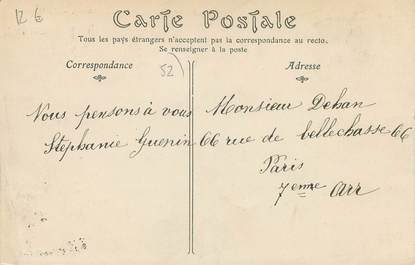 12 €
Carte Postale
Tous les pays étrangers n'acceptent pas la correspondance au recto.
Se renseigner à la poste
Correspondance
52
Adresse
Nous pensons à vous
Stephanie Guenin
Monsieur Dehan
66 rue de bellechasse 66
Paris
7eme Arr